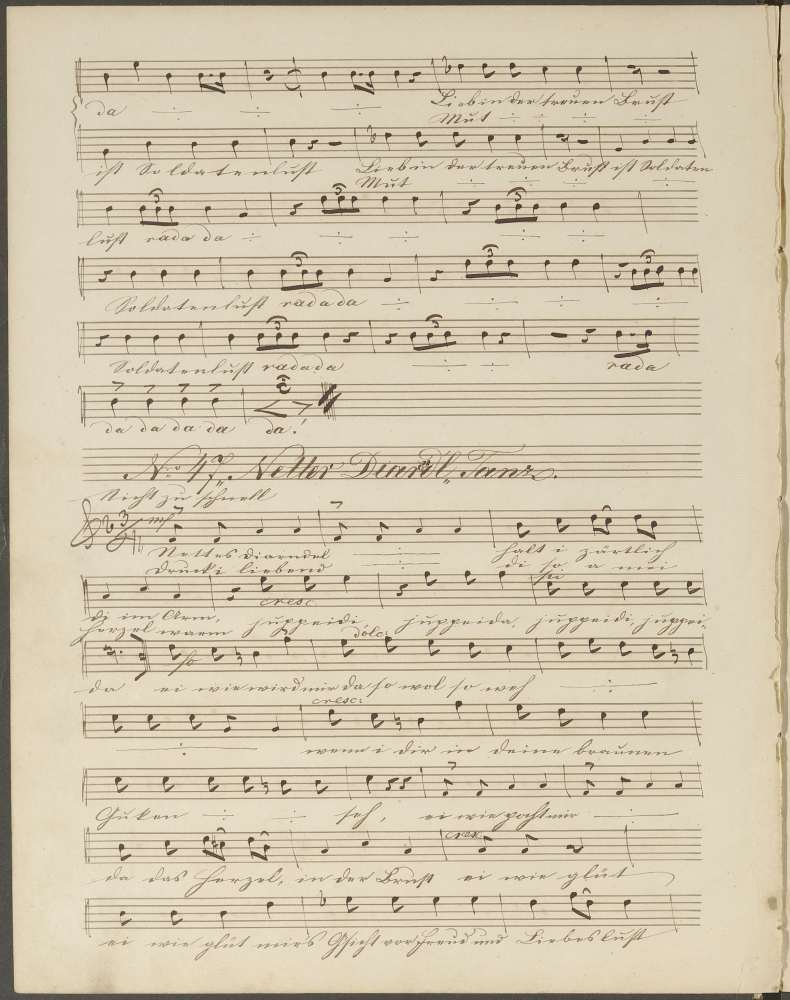 da ÷ ÷ ÷ Lieb in der treuen Brust
Mut ÷ ÷ ÷ ÷
ist Soldatenlust Lieb in der treuen Brust ist Soldaten
Mut ÷ ÷ ÷ ÷
lust rada da ÷ ÷ ÷ ÷ ÷ ÷
Soldatenlust radada ÷ ÷ ÷ ÷
Soldatenlust radada ÷ ÷ rada
da da da da da!
Nro 47. Netter Diandl Tanz.
Nicht zu schnell
mf
Nettes diarndel ÷ halt i zärtlich
Druck i liebend ÷ di so a mei
cresc
di im Arm, juppeidi, juppeida, juppeidi, juppei-
herzel warm
dolc:
da ei wie wird mir da so wol so weh ÷
cresc:
÷ wenn i dir in deine braunen
Guken ÷ ÷ seh, ei wie pocht mir ÷
cresc
da das herzel, in der Brust ei wie glüt
ei wie glüt mirs Gsicht vor Freud und Liebeslust